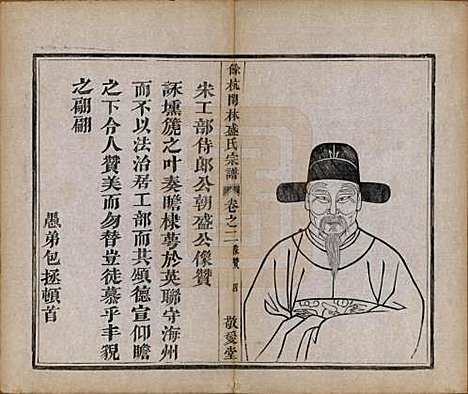 餘杭閑林盛氏宗譜 卷之二 像贊 四 敬愛堂
宋工部侍郎公朝盛公像贊
詠壎篪之叶奏瞻棣萼於英聯守海州
而不以法治居工部而其頌德宣仰瞻
之下令人贊美而勿替豈徒慕乎丰貌
之翩翩
愚弟包拯頓首